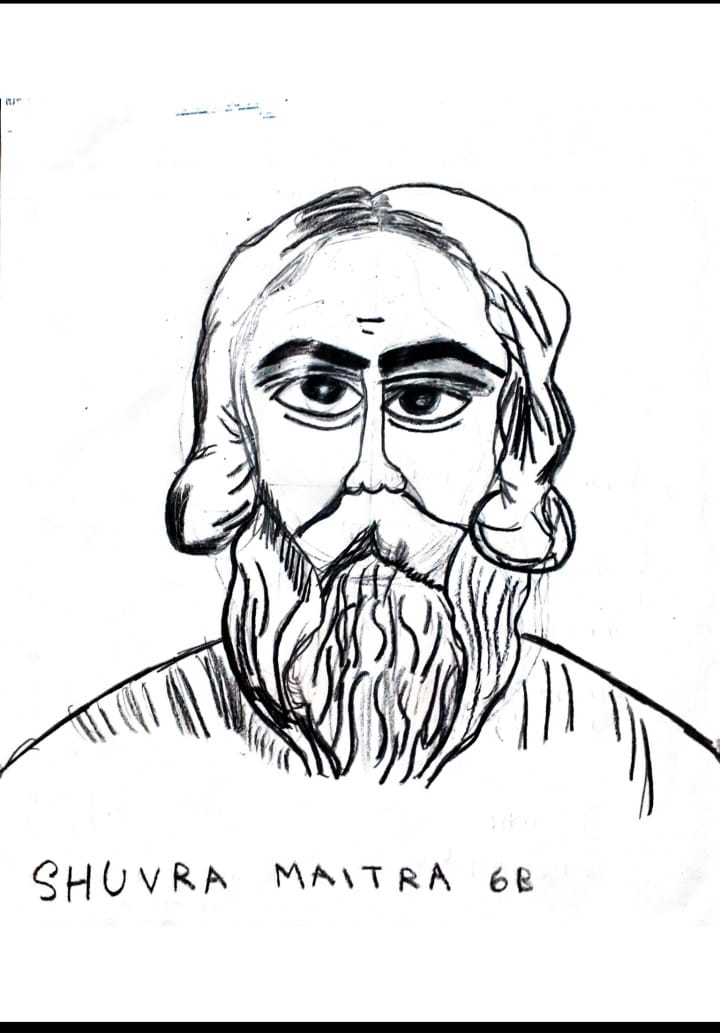 SHUVRA MAITRA 6B